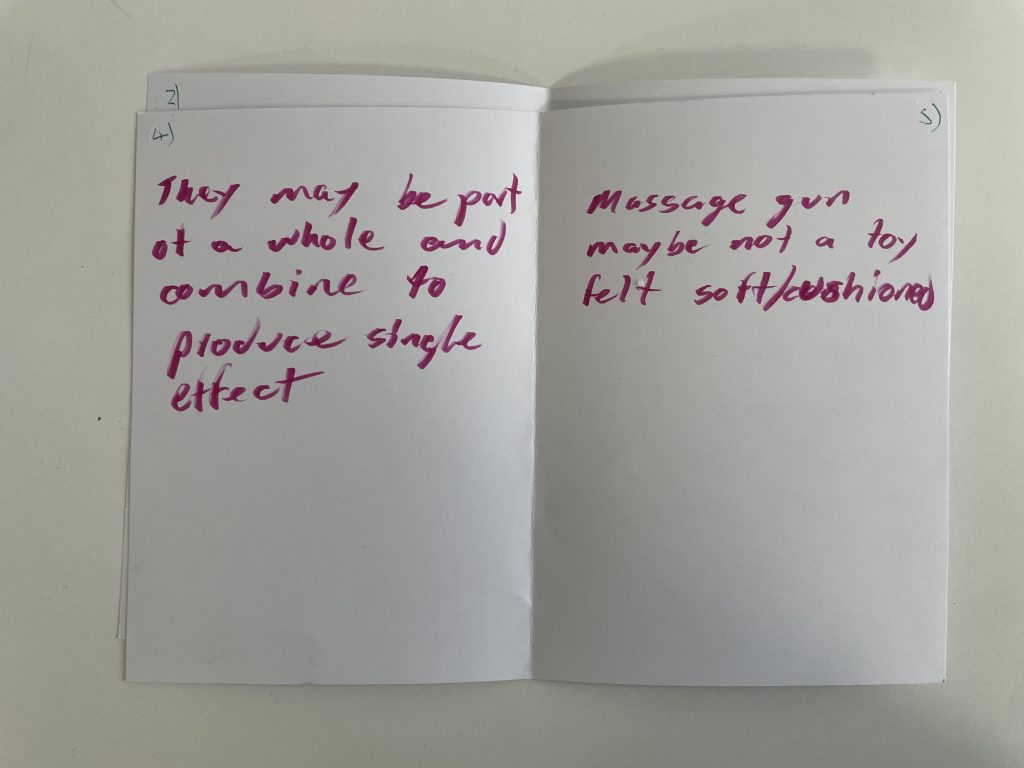 2)
4)
They may be part
of a whole and
combine to
produce single
effect
5)
Massage gun
maybe not a toy
felt soft/cushioned